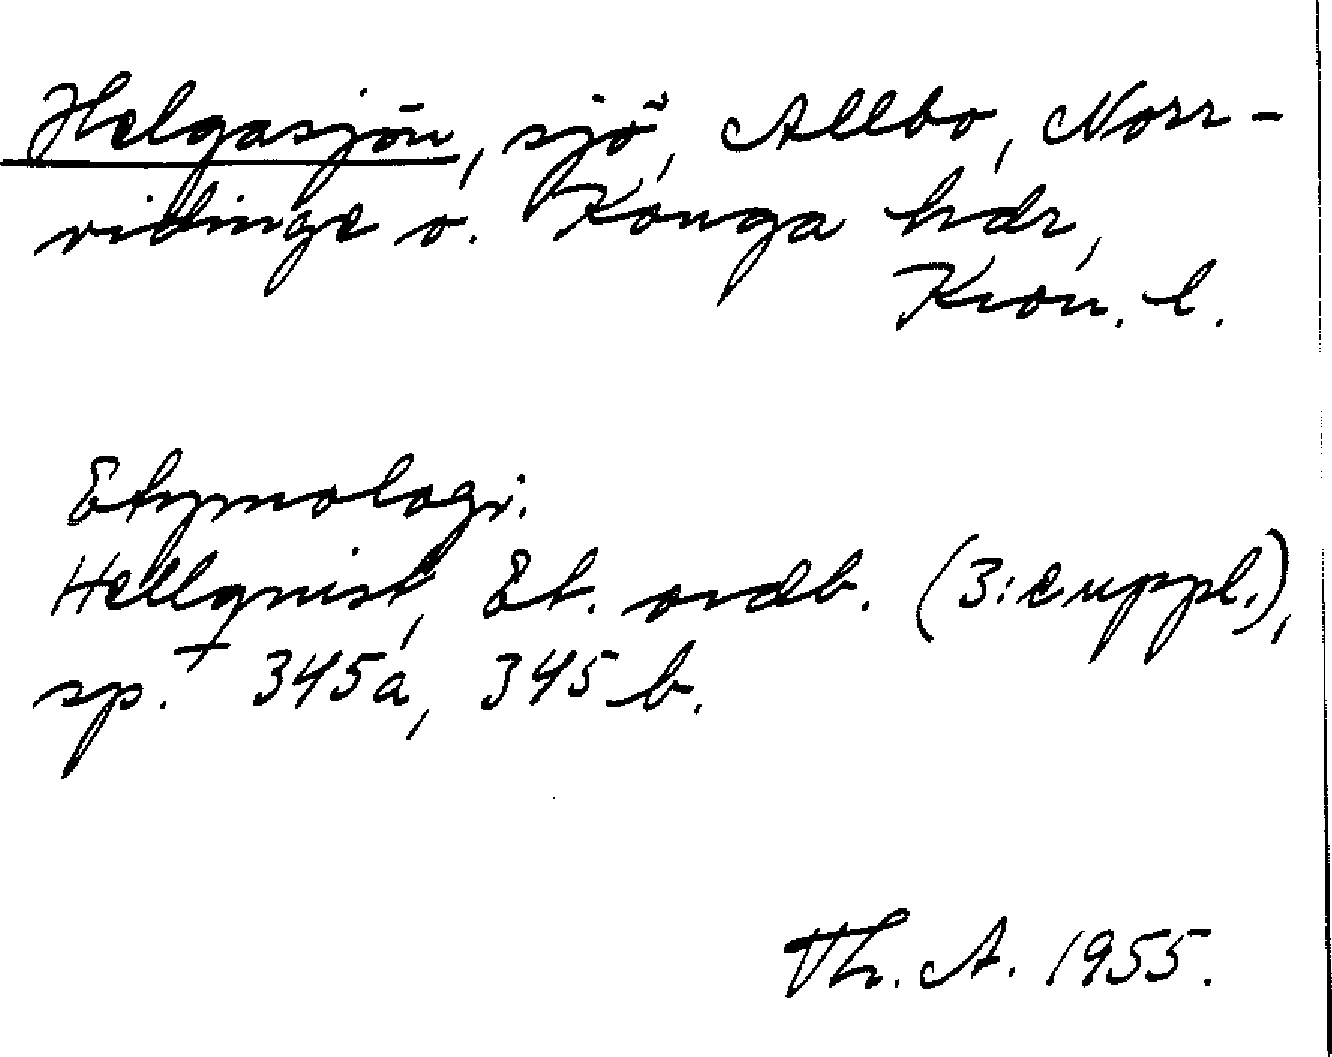 Helgasjön, sjö, Allbo, Norr-
vidinge o. Konga hdr,
Kron. l.
Etymologi.
Hellquist, Et. ordb. (3:e uppl.),
sp. 345a, 345 b.
Th. A. 1955.